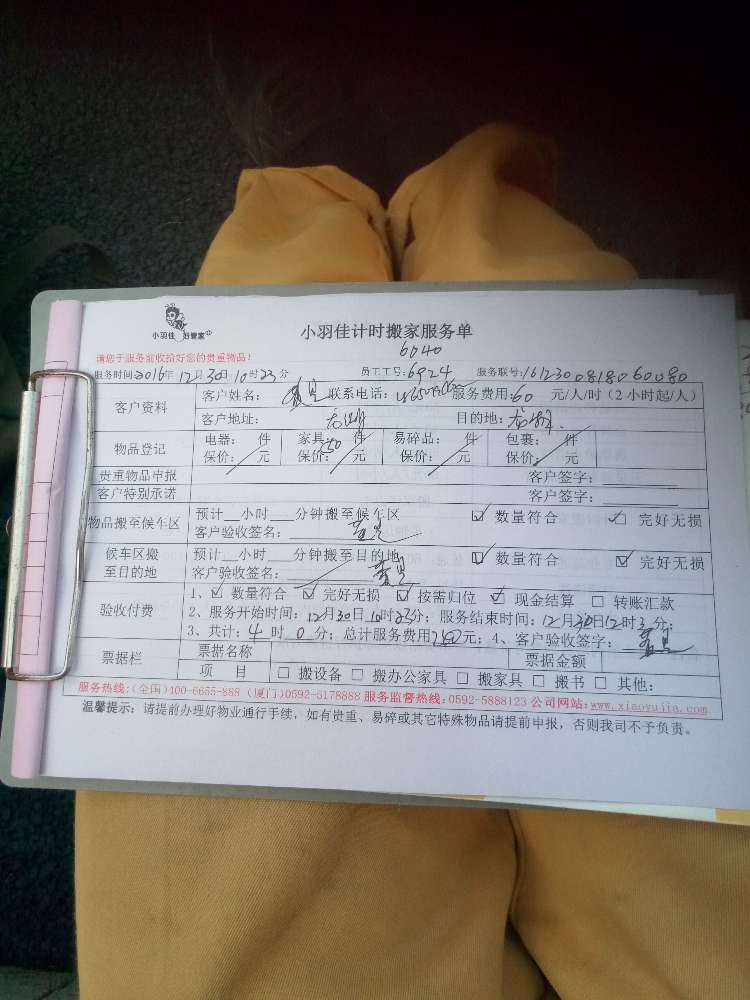 小羽佳 好管家
小羽佳计时搬家服务单
6040
请您于服务前收拾好您的贵重物品!
服务时间2016年12月30日10时23分 员工工号:6924 服务联号:161230081806 0080
客户资料 客户姓名: 联系电话: 服务费用:60 元/人/时(2小时起/人)
客户地址: 目的地:
物品登记 电器: 件 家具: 件 易碎品: 件 包裹: 件
保价: 元 保价: 元 保价: 元 保价: 元
贵重物品申报 客户签字:
客户特别承诺 客户签字:
物品搬至候车区 预计__小时__分钟搬至候车区 ☑ 数量符合 ☑ 完好无损
客户验收签名:
候车区搬至目的地 预计__小时__分钟搬至目的地 ☑ 数量符合 ☑ 完好无损
客户验收签名:
验收付费 1、☑ 数量符合 ☑ 完好无损 ☑ 按需归位 ☑ 现金结算 □ 转账汇款
2、服务开始时间:12月30日10时23分;服务结束时间:12月30日12时3分;
3、共计:4时0分;总计服务费用 元;4、客户验收签字:
票据栏 票据名称 票据金额
项 目 □ 搬设备 □ 搬办公家具 □ 搬家具 □ 搬书 □ 其他:
服务热线:(全国)400-6655-888 (厦门)0592-5178888 服务监督热线:0592-5888123 公司网站:www.xiaoyujia.com
温馨提示:请提前办理好物业通行手续,如有贵重、易碎或其它特殊物品请提前申报,否则我司不予负责。